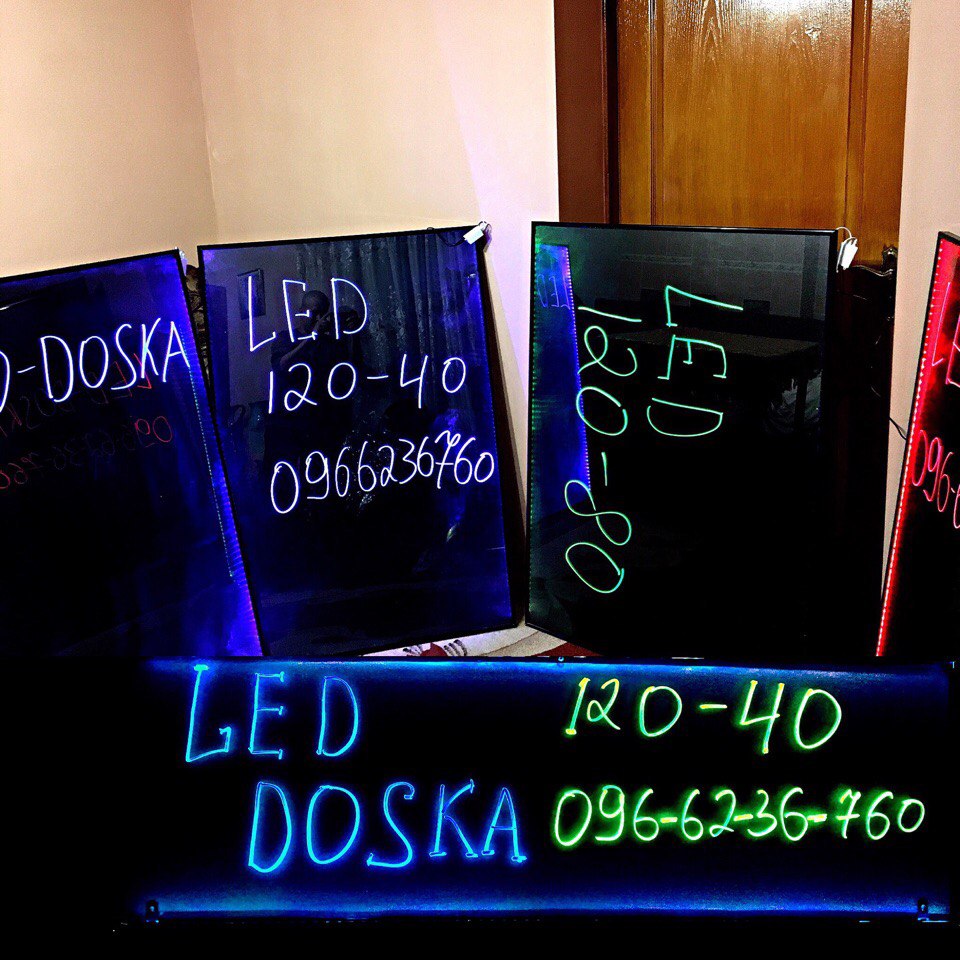 D-DOSKA
LED
120-40
0966236760
LED
120-80
LED
120-40
DOSKA
096-62-36-760